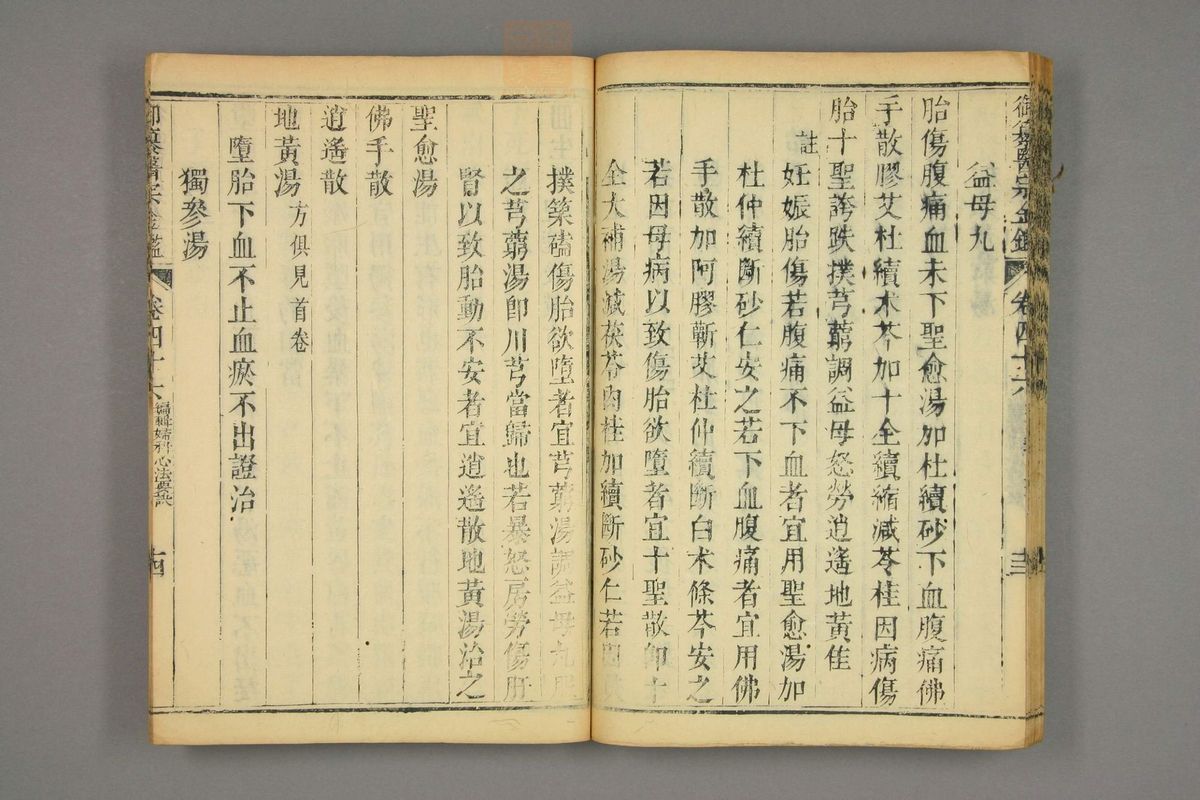 御纂醫宗金鑑 卷四十六
益母丸
胎傷腹痛血未下聖愈湯加杜續砂下血腹痛佛
手散膠艾杜續术芩加十全續縮減苓桂因病傷
胎十聖誇跌撲芎藭調益母怒勞逍遙地黃佳
註
妊娠胎傷若腹痛不下血者宜用聖愈湯加
杜仲續斷砂仁安之若下血腹痛者宜用佛
手散加阿膠蘄艾杜仲續斷白术條芩安之
若因母病以致傷胎欲墮者宜十聖散卽十
全大補湯減茯苓肉桂加續斷砂仁若因
撲築磕傷胎欲墮者宜芎藭湯調益母丸服
之芎藭湯卽川芎當歸也若暴怒房勞傷肝
腎以致胎動不安者宜逍遙散地黃湯治之
聖愈湯
佛手散
逍遙散
地黃湯 方俱見首卷
墮胎下血不止血瘀不出證治
獨參湯
御纂醫宗金鑑 卷四十六 編輯婦科心法要訣 十四